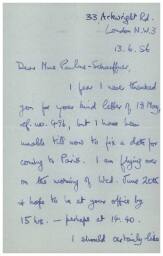 33 Arkwright Rd.
London N.W.3
13.6.56
Dear Mme Pauline-Schaeffner,
I fear I have thanked
you for your kind letter of 18 May,
ref. no. 496, but I have been
unable till now to fix a date for
coming to Paris. I am flying over
on the morning of Wed. June 20th
& hope to be at your office by
15 hrs. — perhaps at 14.40.
I should certainly like